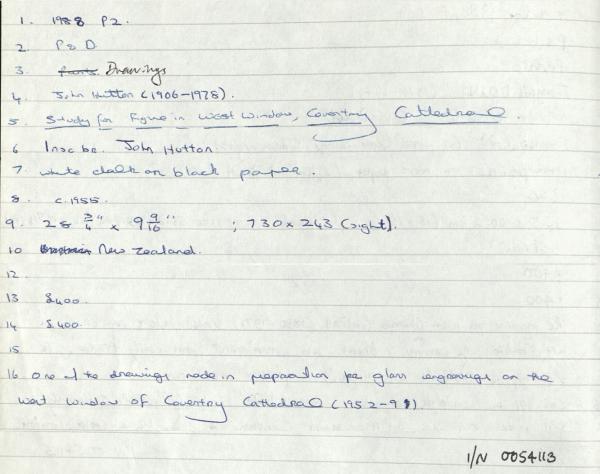 1. 1988 P2.
2 P & D
3. Prints Drawings
4. John Hutton (1906-1978).
5. Study for Figure in West Window, Coventry Cathedral.
6 Insc br. John Hutton
7. white chalk on black paper.
8. c. 1955.
9. 28 3/4" x 9 9/16" ; 730 x 243 (sight).
10 New Zealand.
12
13 £400.
14 £400.
15
16 One of the drawings made in preparation for glass engravings on the
West window of Coventry Cathedral (1952-9).
I/N 0054113